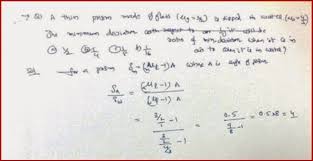 → Q) A thin prism made of glass (μg=3/2) is dipped in water (μw=4/3)
The minimum deviation with respect to air it will be
ratio of min. deviation when it is in
air to when it is in water)
a) 1/2 b) 1/4 c) 4 d) 1/16
Sol for a prism δ = (μ-1) A where A is angle of prism
δa/δw = (μg-1) A / (μg-1) A
= (3/2 - 1) / ((3/2)/(4/3) - 1) = 0.5 / (9/8 - 1) = 0.5×8 = 4